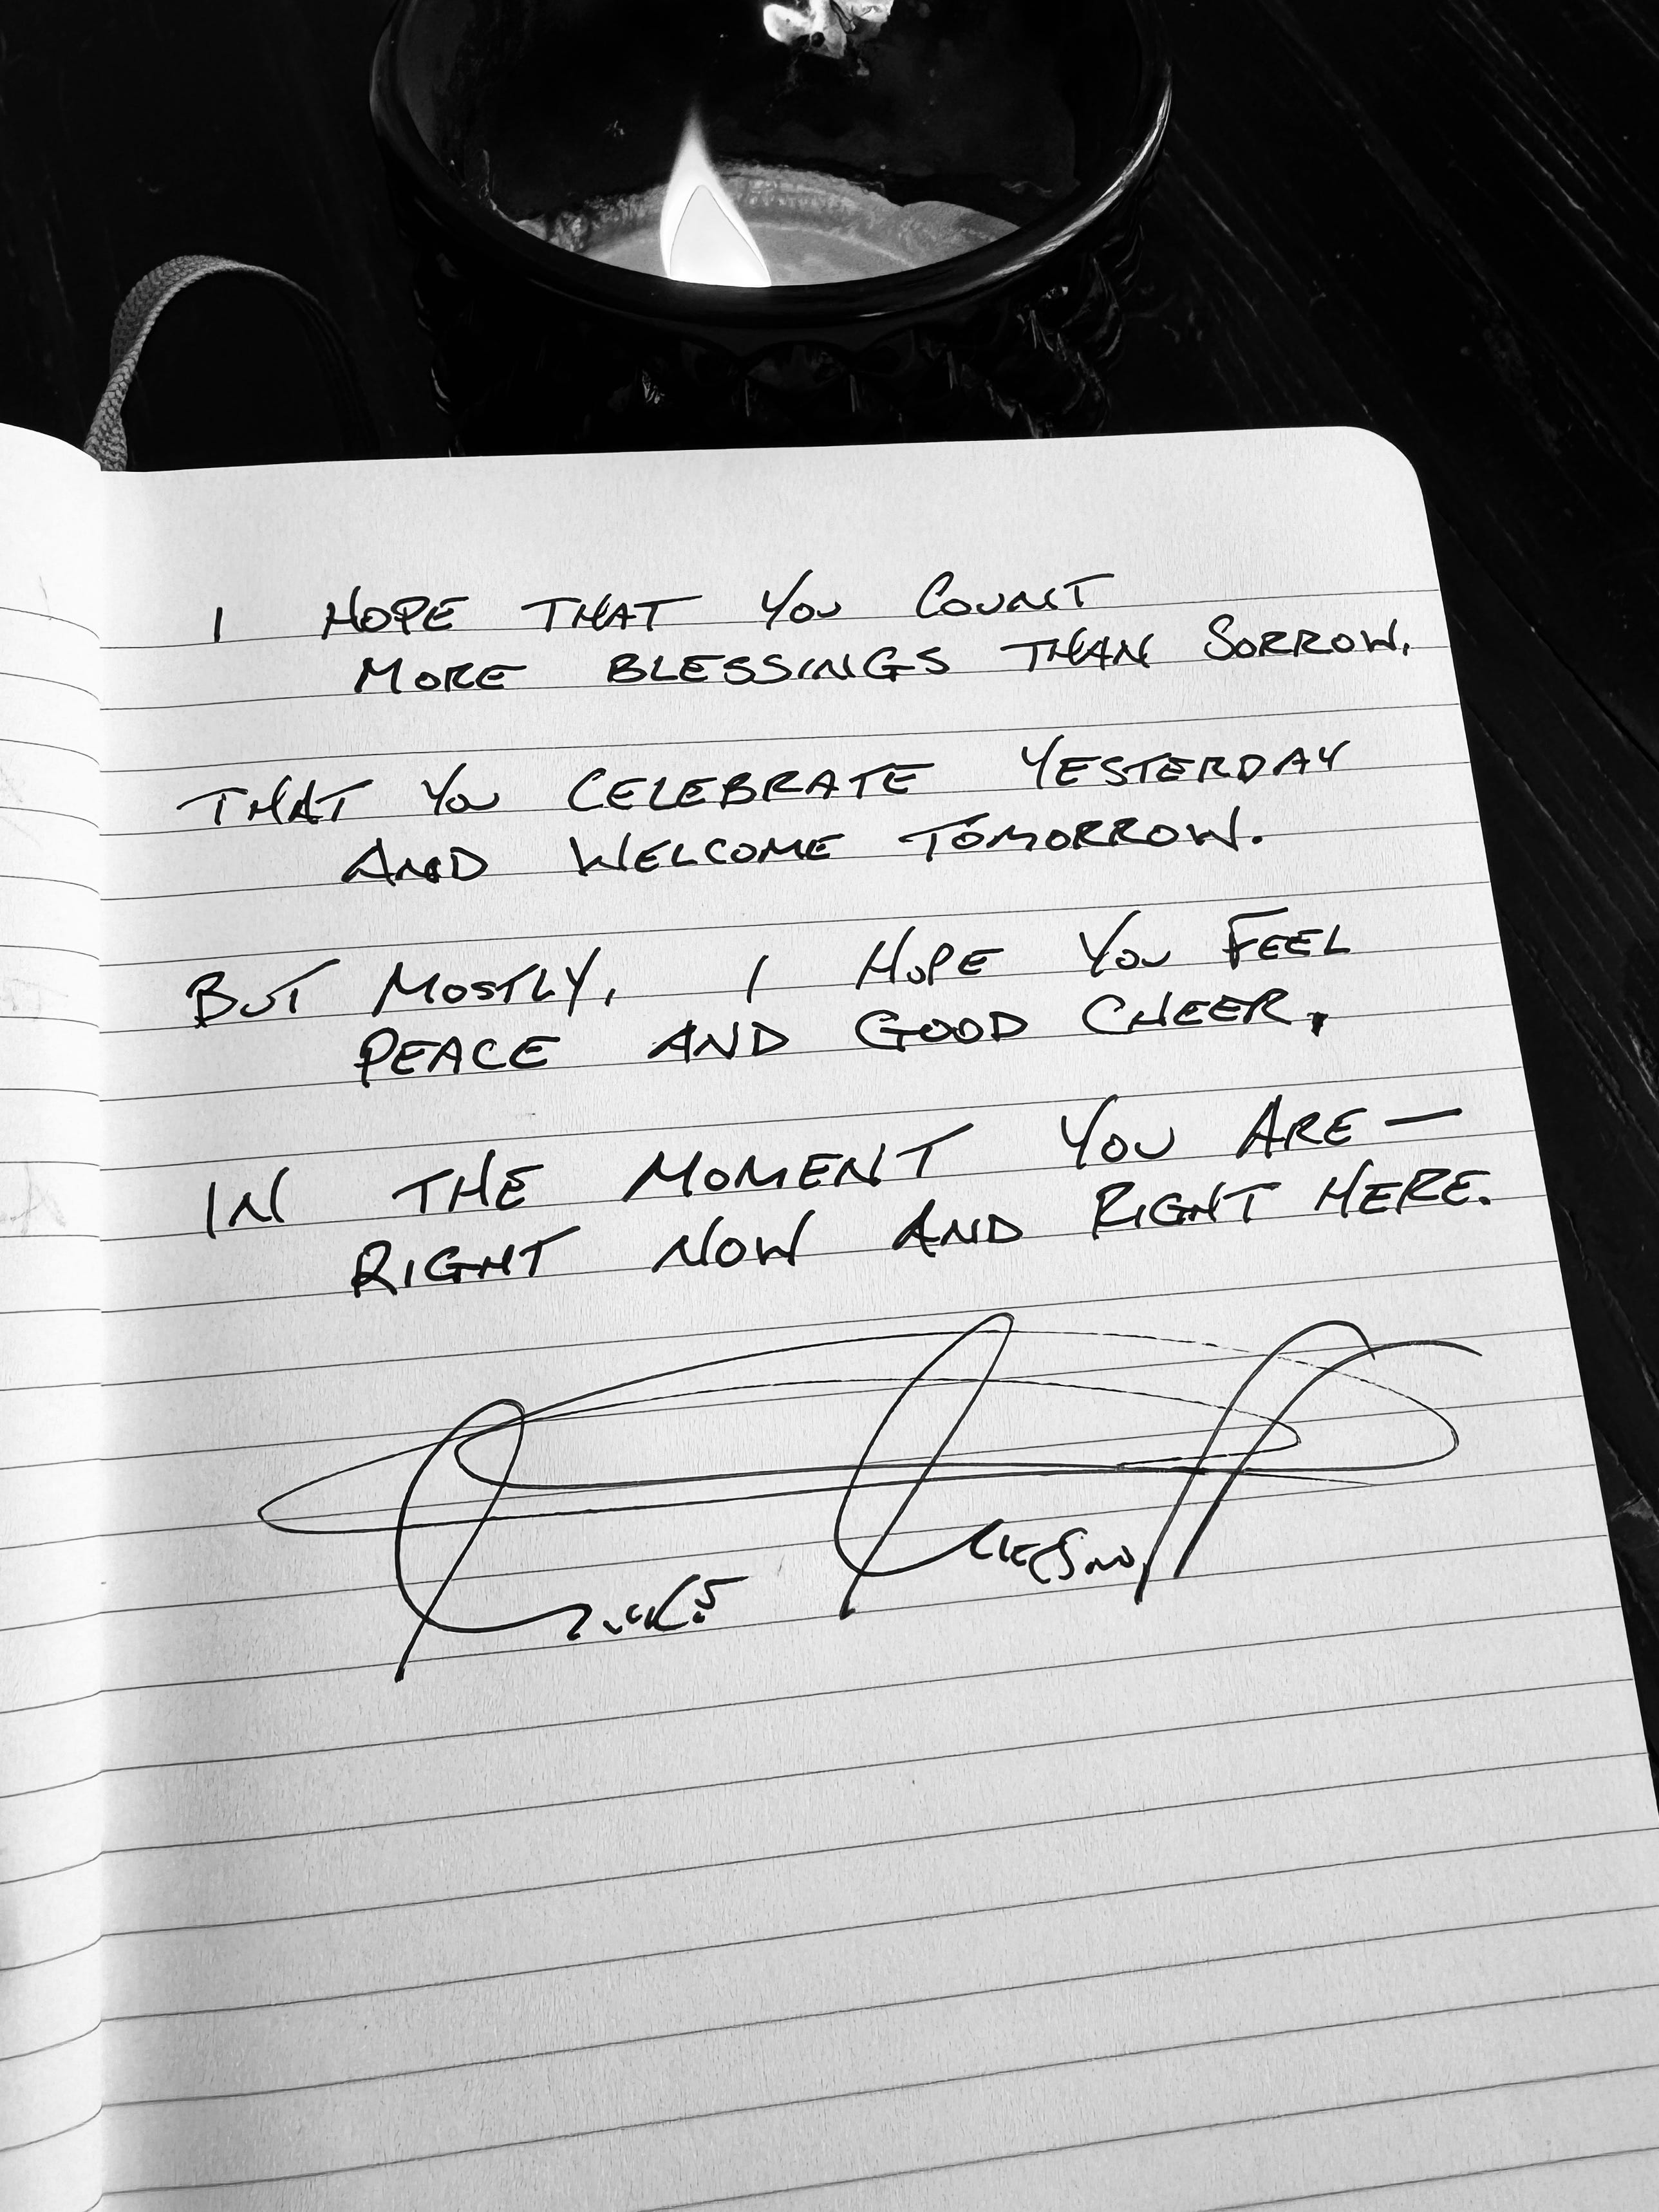 I HOPE THAT YOU COUNT
MORE BLESSINGS THAN SORROW.
THAT YOU CELEBRATE YESTERDAY
AND WELCOME TOMORROW.
BUT MOSTLY, I HOPE YOU FEEL
PEACE AND GOOD CHEER,
IN THE MOMENT YOU ARE—
RIGHT NOW AND RIGHT HERE.